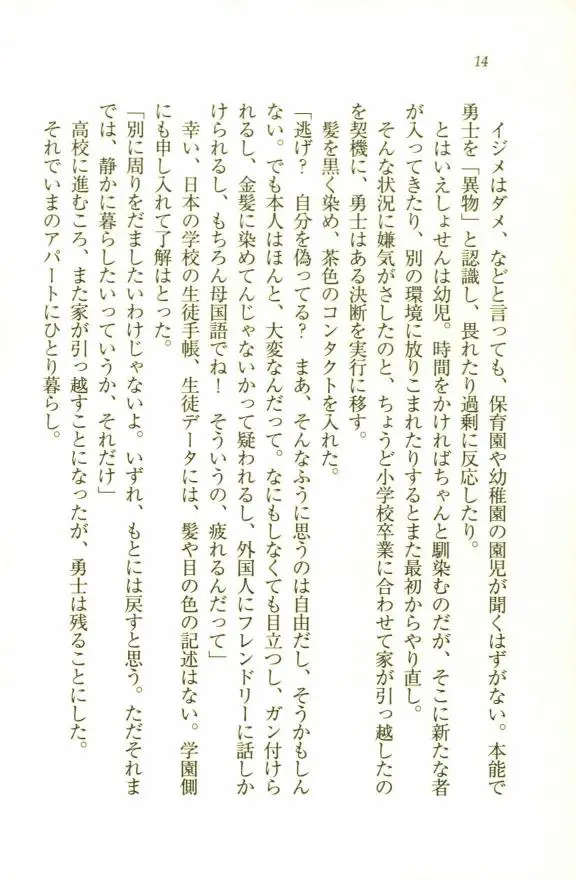 14
イジメはダメ、などと言っても、保育園や幼稚園の園児が聞くはずがない。本能で
勇士を「異物」と認識し、畏れたり過剰に反応したり。
とはいえしょせんは幼児。時間をかければちゃんと馴染むのだが、そこに新たな者
が入ってきたり、別の環境に放りこまれたりするとまた最初からやり直し。
そんな状況に嫌気がさしたのと、ちょうど小学校卒業に合わせて家が引っ越したの
を契機に、勇士はある決断を実行に移す。
髪を黒く染め、茶色のコンタクトを入れた。
「逃げ？　自分を偽ってる？　まあ、そんなふうに思うのは自由だし、そうかもしん
ない。でも本人はほんと、大変なんだって。なにもしなくても目立つし、ガン付けら
れるし、金髪に染めてんじゃないかって疑われるし、外国人にフレンドリーに話しか
けられるし、もちろん母国語でね！　そういうの、疲れるんだって」
幸い、日本の学校の生徒手帳、生徒データには、髪や目の色の記述はない。学園側
にも申し入れて了解はとった。
「別に周りをだましたいわけじゃないよ。いずれ、もとには戻すと思う。ただそれま
では、静かに暮らしたいっていうか、それだけ」
高校に進むころ、また家が引っ越すことになったが、勇士は残ることにした。
それでいまのアパートにひとり暮らし。